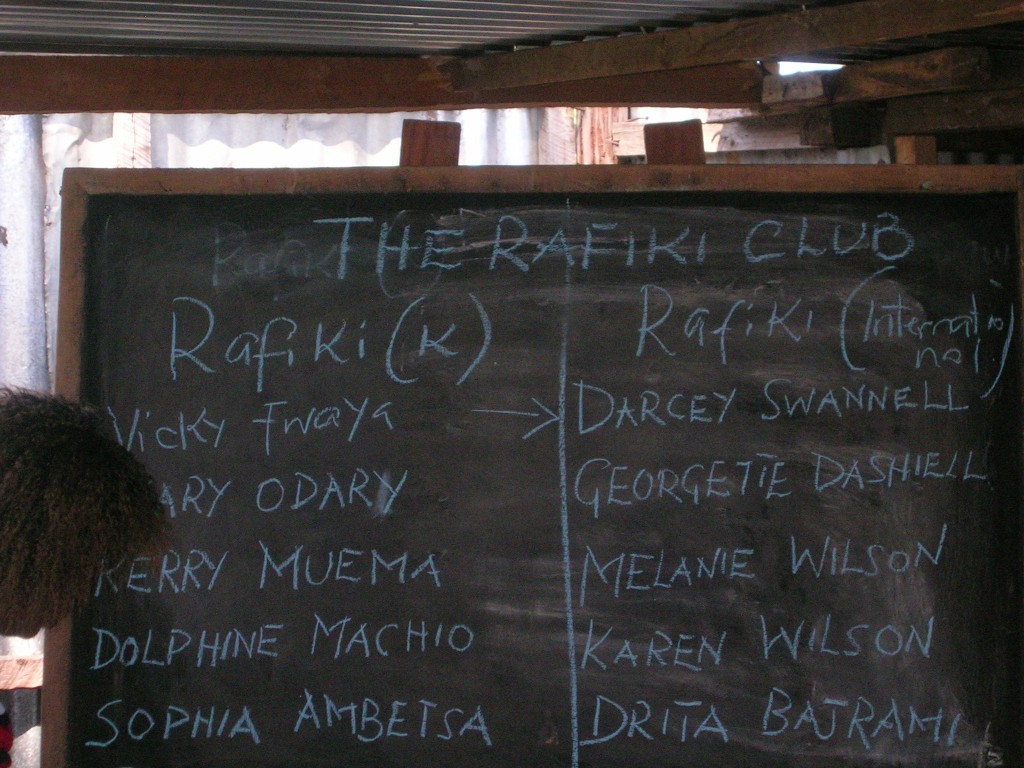 THE RAFIKI CLUB
Rafiki (K)
Vicky Fwaya
ARY ODARY
KERRY MUEMA
DOLPHINE MACHIO
SOPHIA AMBETSA
Rafiki (Internatio
nal)
DARCEY SWANNELL
GEORGETTE DASHIELL
MELANIE WILSON
KAREN WILSON
DRITA BAJRAMI